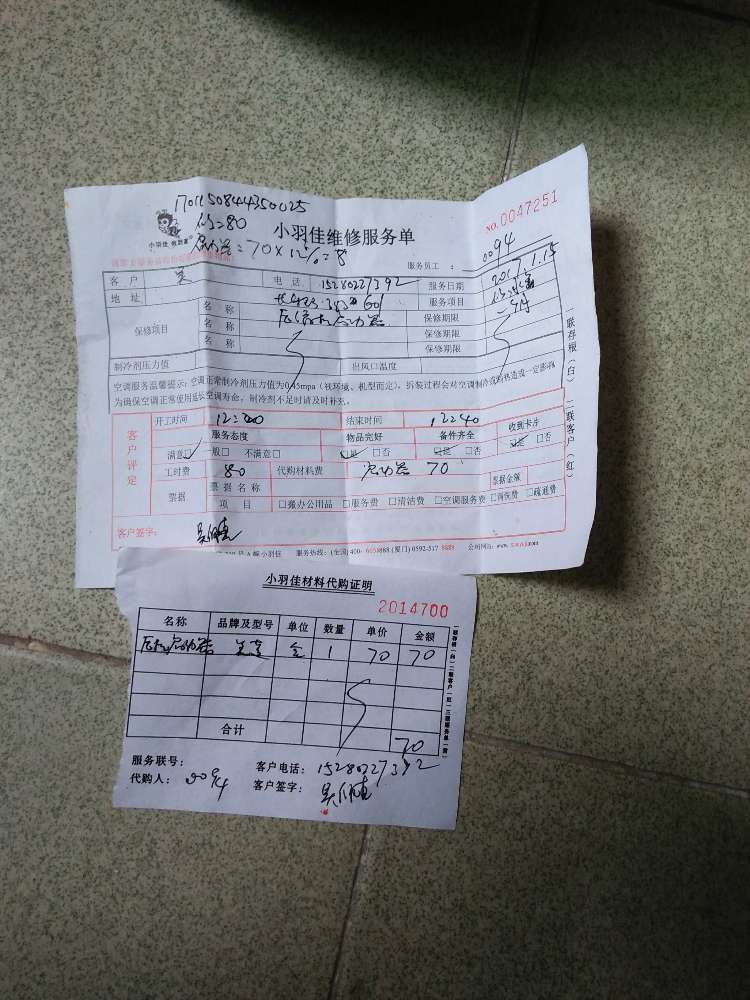 1701150844350025
小羽佳 救助家
=80
小羽佳维修服务单
NO.0047251
=70×12%=8
服务员工: 0094
客户 吴 电话 15280227392 服务日期 2017.1.15
地址 服务项目
保修项目 名称 保修期限
名称 保修期限
名称 保修期限
制冷剂压力值 出风口温度
空调服务温馨提示:空调正常制冷剂压力值为0.45mpa(视环境、机型而定),拆装过程会对空调制冷或制热造成一定影响
为确保空调正常使用延长空调寿命,制冷剂不足时请及时补充。
客户评定
开工时间 12:00 结束时间 12:40
服务态度 物品完好 备件齐全 收到卡片
满意☑ 一般□ 不满意□ ☑是 □否 ☑是 □否 ☑是 □否
工时费 80 代购材料费 启动器 70
票据 票据名称 票据金额
项目 □搬办公用品 □服务费 □清洁费 □空调服务费 □清洗费 □疏通费
客户签字:
小羽佳 服务热线:(全国)400- 8888 (厦门) 0592-517 8888 公司网站: www.
一联存根(白) 二联客户(红)
小羽佳材料代购证明
2014700
名称 品牌及型号 单位 数量 单价 金额
启动器 个 1 70 70
合计 70
服务联号:
代购人: 0094
客户电话: 15280227392
客户签字: